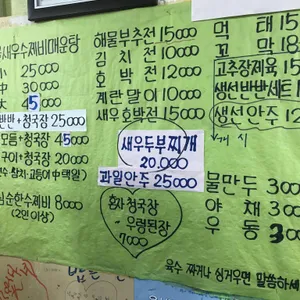 새우수제비매운탕
小 25000
中 30000
大 45000
반반+청국장 25000
모듬+청국장 45000
구이+청국장 20000
8000
(2인 이상)
해물부추전 15000
김치전 10000
호박전 12000
계란말이 10000
새우호박전 15000
새우두부찌개
20.000
과일안주 25000
혼자 청국장
우렁된장
7000
먹태 15
꼬막 18
고추장제육 15
생선반반세트
생선안주 12
개시
물만두 300
야채 300
우동 300
육수 짜거나 싱거우면 말씀하세